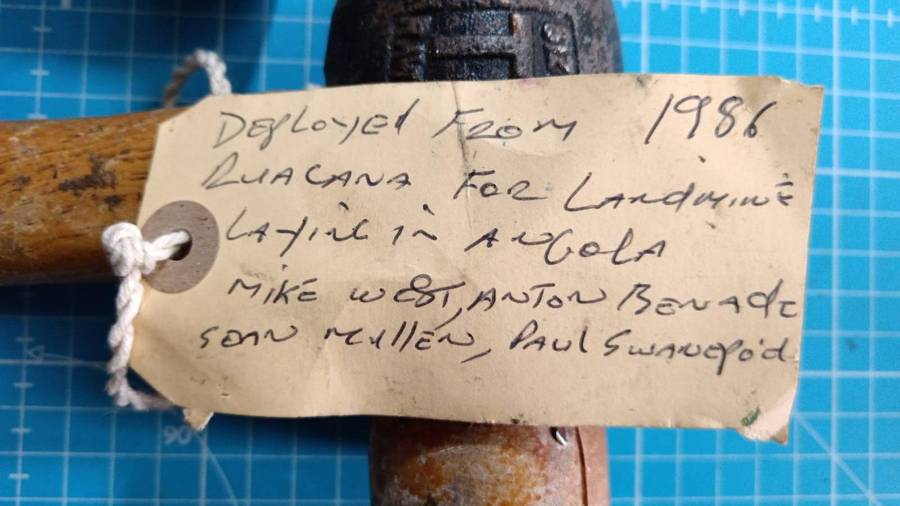 Deployed From 1986
Ruacana For Landmine
Laying in Angola
Mike West, Anton Benade
Sean Mullen, Paul Swanepo'el